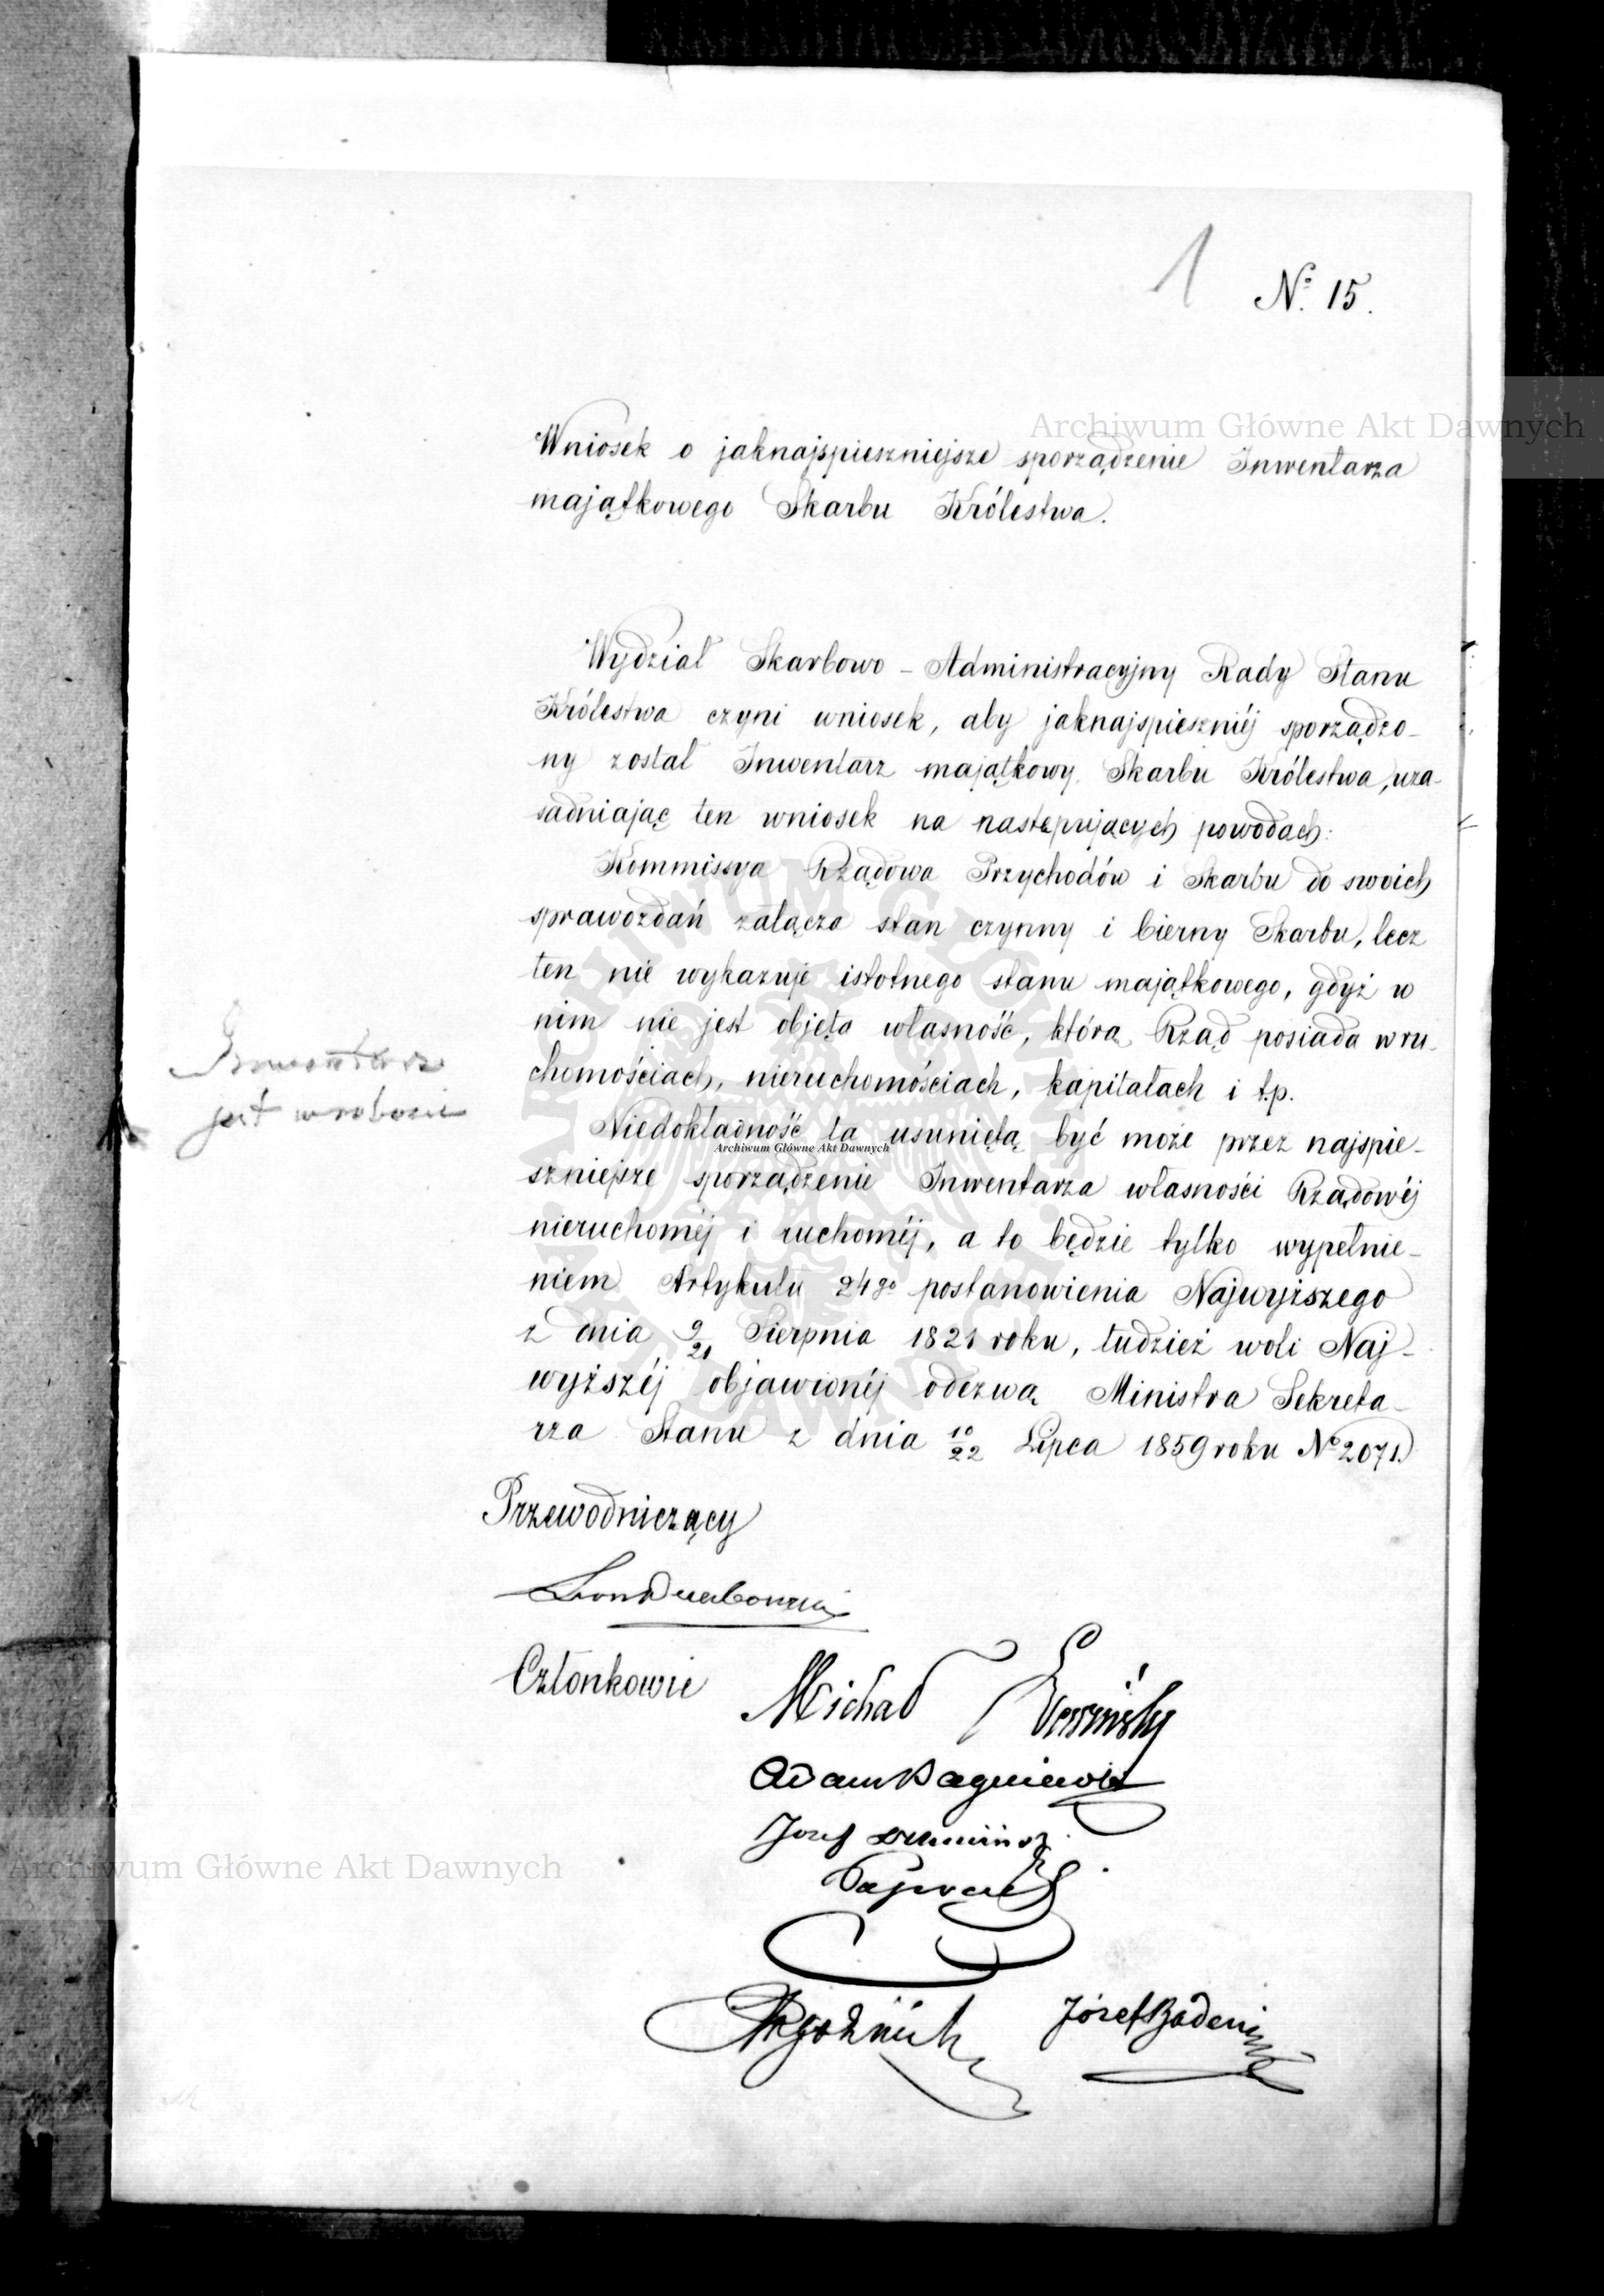 1
Nº 15.
Archiwum Główne Akt Dawnych
Wniosek o jaknajspieszniejsze sporządzenie Inwentarza
majątkowego Skarbu Królestwa.
Wydział Skarbowo - Administracyjny Rady Stanu
Królestwa czyni wniosek, aby jaknajspieszniéj sporządzo-
ny został Inwentarz majątkowy Skarbu Królestwa, uza-
sadniając ten wniosek na następujących powodach:
Kommissya Rządowa Przychodów i Skarbu do swoich
sprawozdań załącza stan czynny i bierny Skarbu, lecz
ten nie wykazuje istotnego stanu majątkowego, gdyż w
nim nie jest objęta własność, którą Rząd posiada w ru-
chomościach, nieruchomościach, kapitałach i t.p.
Inwentarz
jest w robocie
Niedokładność ta usuniętą być może przez najspie-
Archiwum Główne Akt Dawnych
szniejsze sporządzenie Inwentarza własności Rządowéj
nieruchoméj i ruchoméj, a to będzie tylko wypełnie-
niem Artykułu 24go postanowienia Najwyższego
z dnia 9/21 Sierpnia 1821 roku, tudzież woli Naj-
wyższéj objawionéj odezwą Ministra Sekreta-
rza Stanu z dnia 10/22 Lipca 1859 roku Nº 2071.
Przewodniczący
Członkowie
Michał
Adam
Józef
Józef Badeni
Archiwum Główne Akt Dawnych